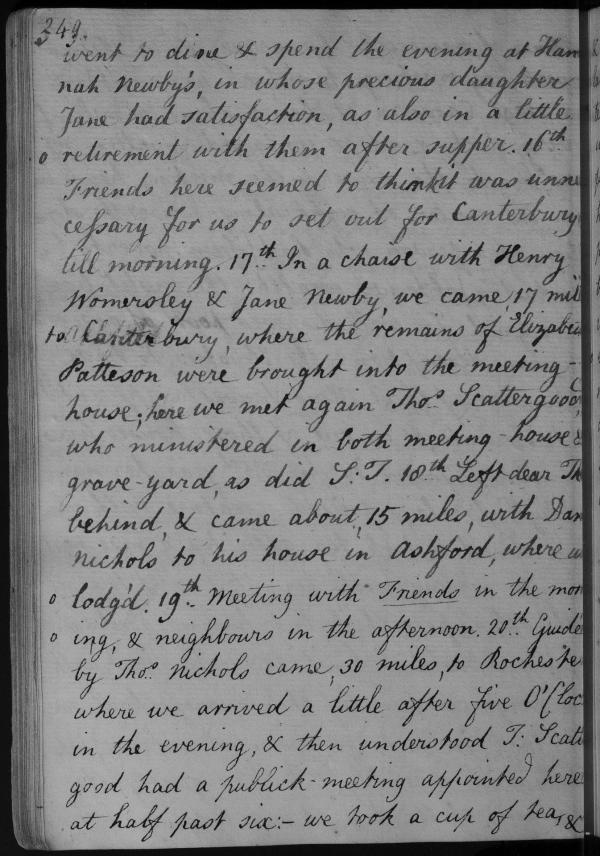 249.
went to dine & spend the evening at Han
nah Newby's, in whose precious daughter
Jane had satisfaction, as also in a little
o retirement with them after supper. 16th
Friends here seemed to think it was unne
cessary for us to set out for Canterbury
till morning. 17th In a chaise with Henry
Womersley & Jane Newby, we came 17 mil
to Canterbury, where the remains of Elizabe
Patteson were brought into the meeting-
house; here we met again Thos. Scattergood,
who ministered in both meeting-house &
grave-yard, as did S:T. 18th Left dear Th
behind, & came about, 15 miles, with Dan
Nichols to his house in Ashford, where w
o lodg'd. 19th Meeting with Friends in the mor
o ing, & neighbours in the afternoon. 20th Guide
by Thos. Nichols came, 30 miles, to Rocheste
where we arrived a little after five O'Cloc
in the evening, & then understood T: Scatt
good had a publick-meeting appointed here
at half past six:- we took a cup of tea, &